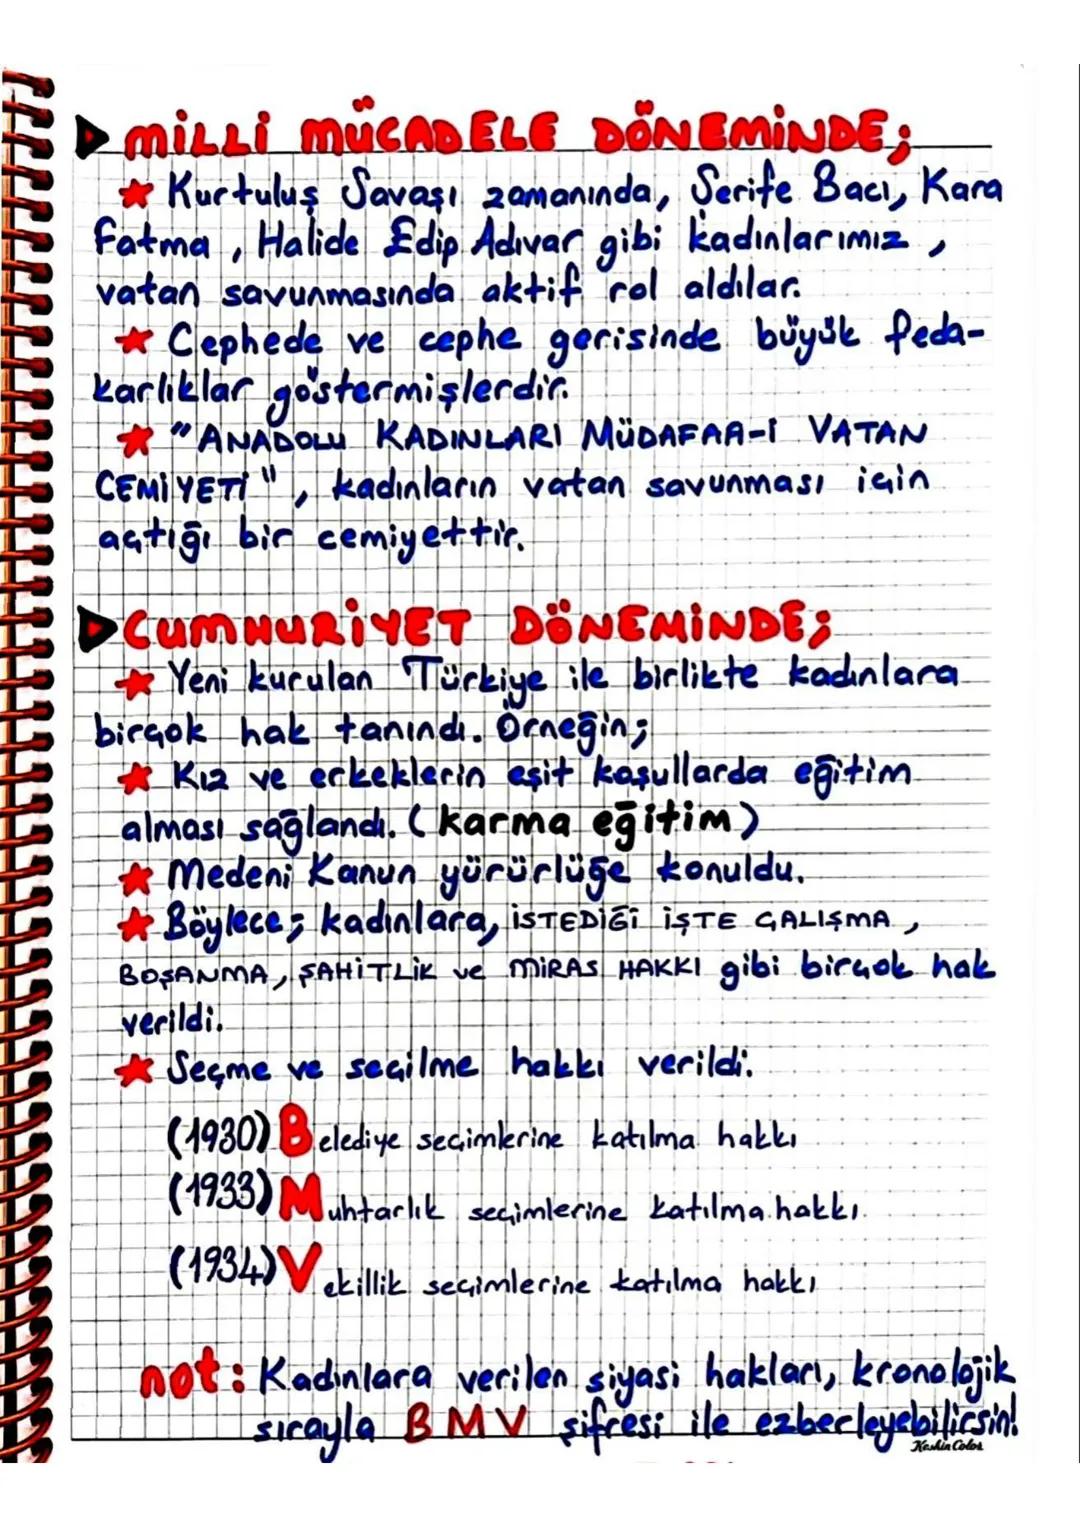 MİLLİ MÜCADELE DÖNEMİNDE;
Kurtuluş Savaşı zamanında, Şerife Bacı, Kara
Fatma, Halide Edip Adıvar gibi kadınlarımız,
vatan savunmasında aktif rol aldılar.
Cephede ve cephe gerisinde büyük feda-
karlıklar göstermişlerdir.
"ANADOLU KADINLARI MÜDAFAA-İ VATAN
CEMİYETİ", kadınların vatan savunması için
açtığı bir cemiyettir.
CUMHURİYET DÖNEMİNDE;
Yeni kurulan Türkiye ile birlikte kadınlara
birçok hak tanındı. Örneğin;
Kız ve erkeklerin eşit koşullarda eğitim
alması sağlandı. (karma eğitim)
Medeni Kanun yürürlüğe konuldu.
Böylece; kadınlara, İSTEDİĞİ İŞTE ÇALIŞMA,
BOŞANMA, ŞAHİTLİK ve MİRAS HAKKI gibi birçok hak
verildi.
Seçme ve seçilme hakkı verildi.
(1930) Belediye seçimlerine katılma hakkı
(1933) Muhtarlık seçimlerine katılma hakkı.
(1934) Vekillik seçimlerine katılma hakkı
not: Kadınlara verilen siyasi hakları, kronolojik
sırayla BMV şifresi ile ezberleyebilirsin!
Keskin Color